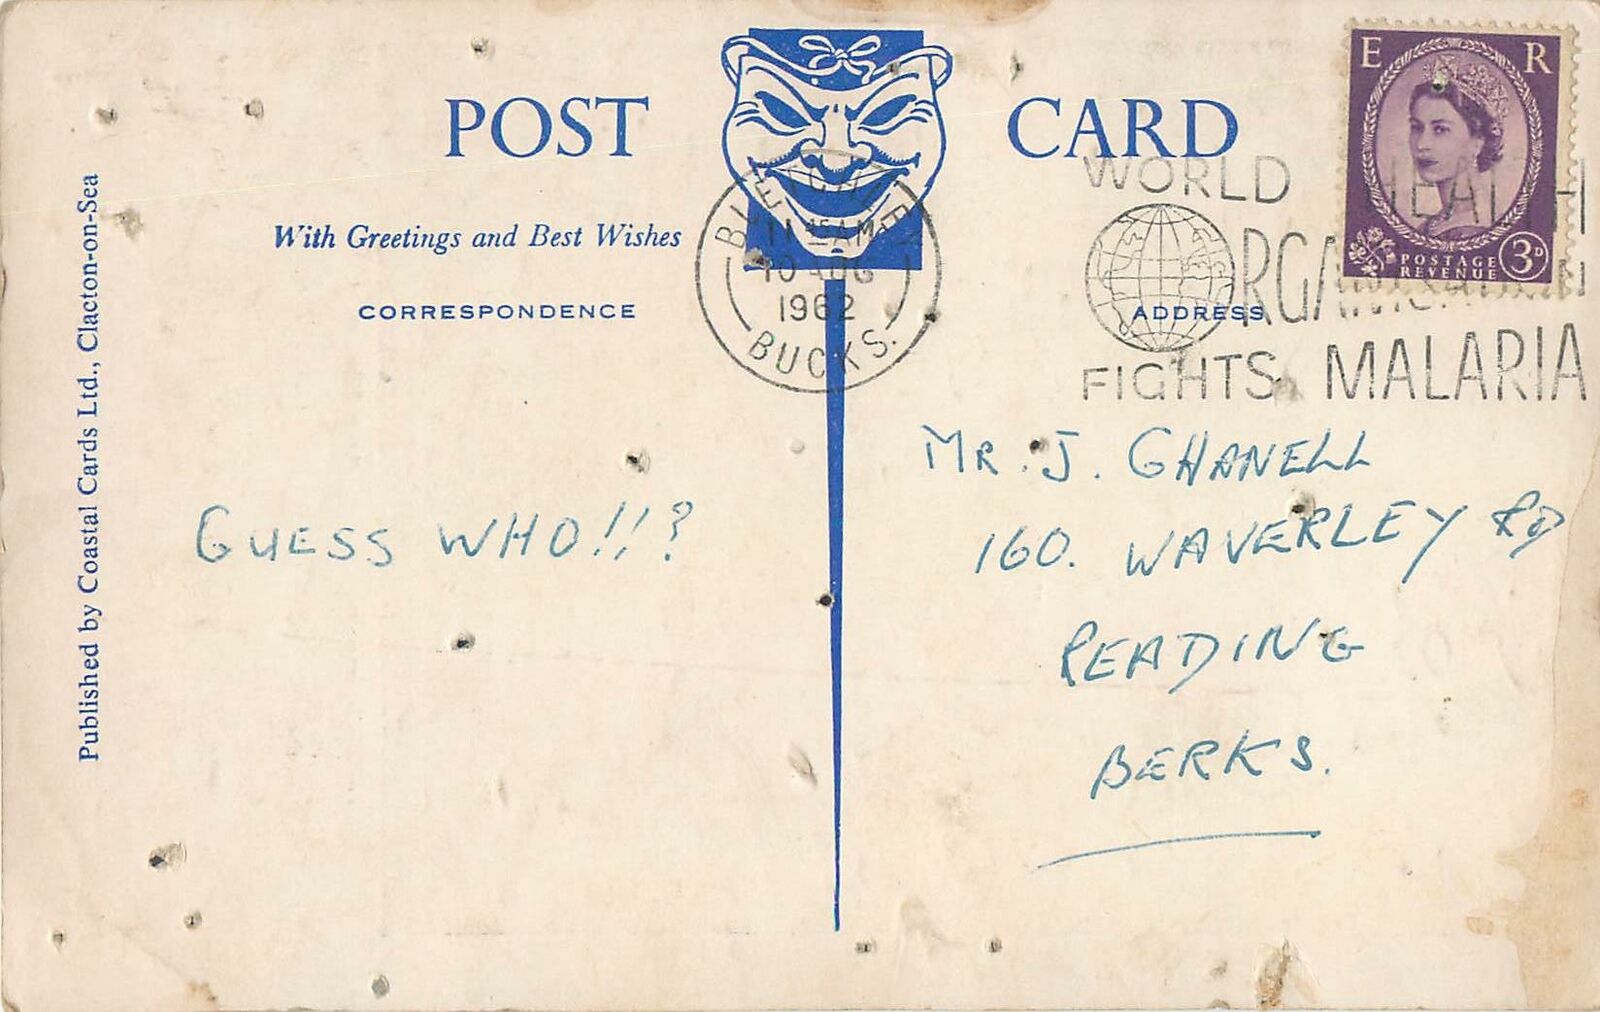 POST CARD
With Greetings and Best Wishes
CORRESPONDENCE
ADDRESS
Published by Coastal Cards Ltd., Clacton-on-Sea
E R
POSTAGE
REVENUE
3D
BLETCHLEY
11 45 AM
10 AUG
1962
BUCKS.
WORLD HEALTH
ORGANISATION
FIGHTS MALARIA
GUESS WHO!!?
MR. J. GHANELL
160. WAVERLEY RD
READING
BERKS.